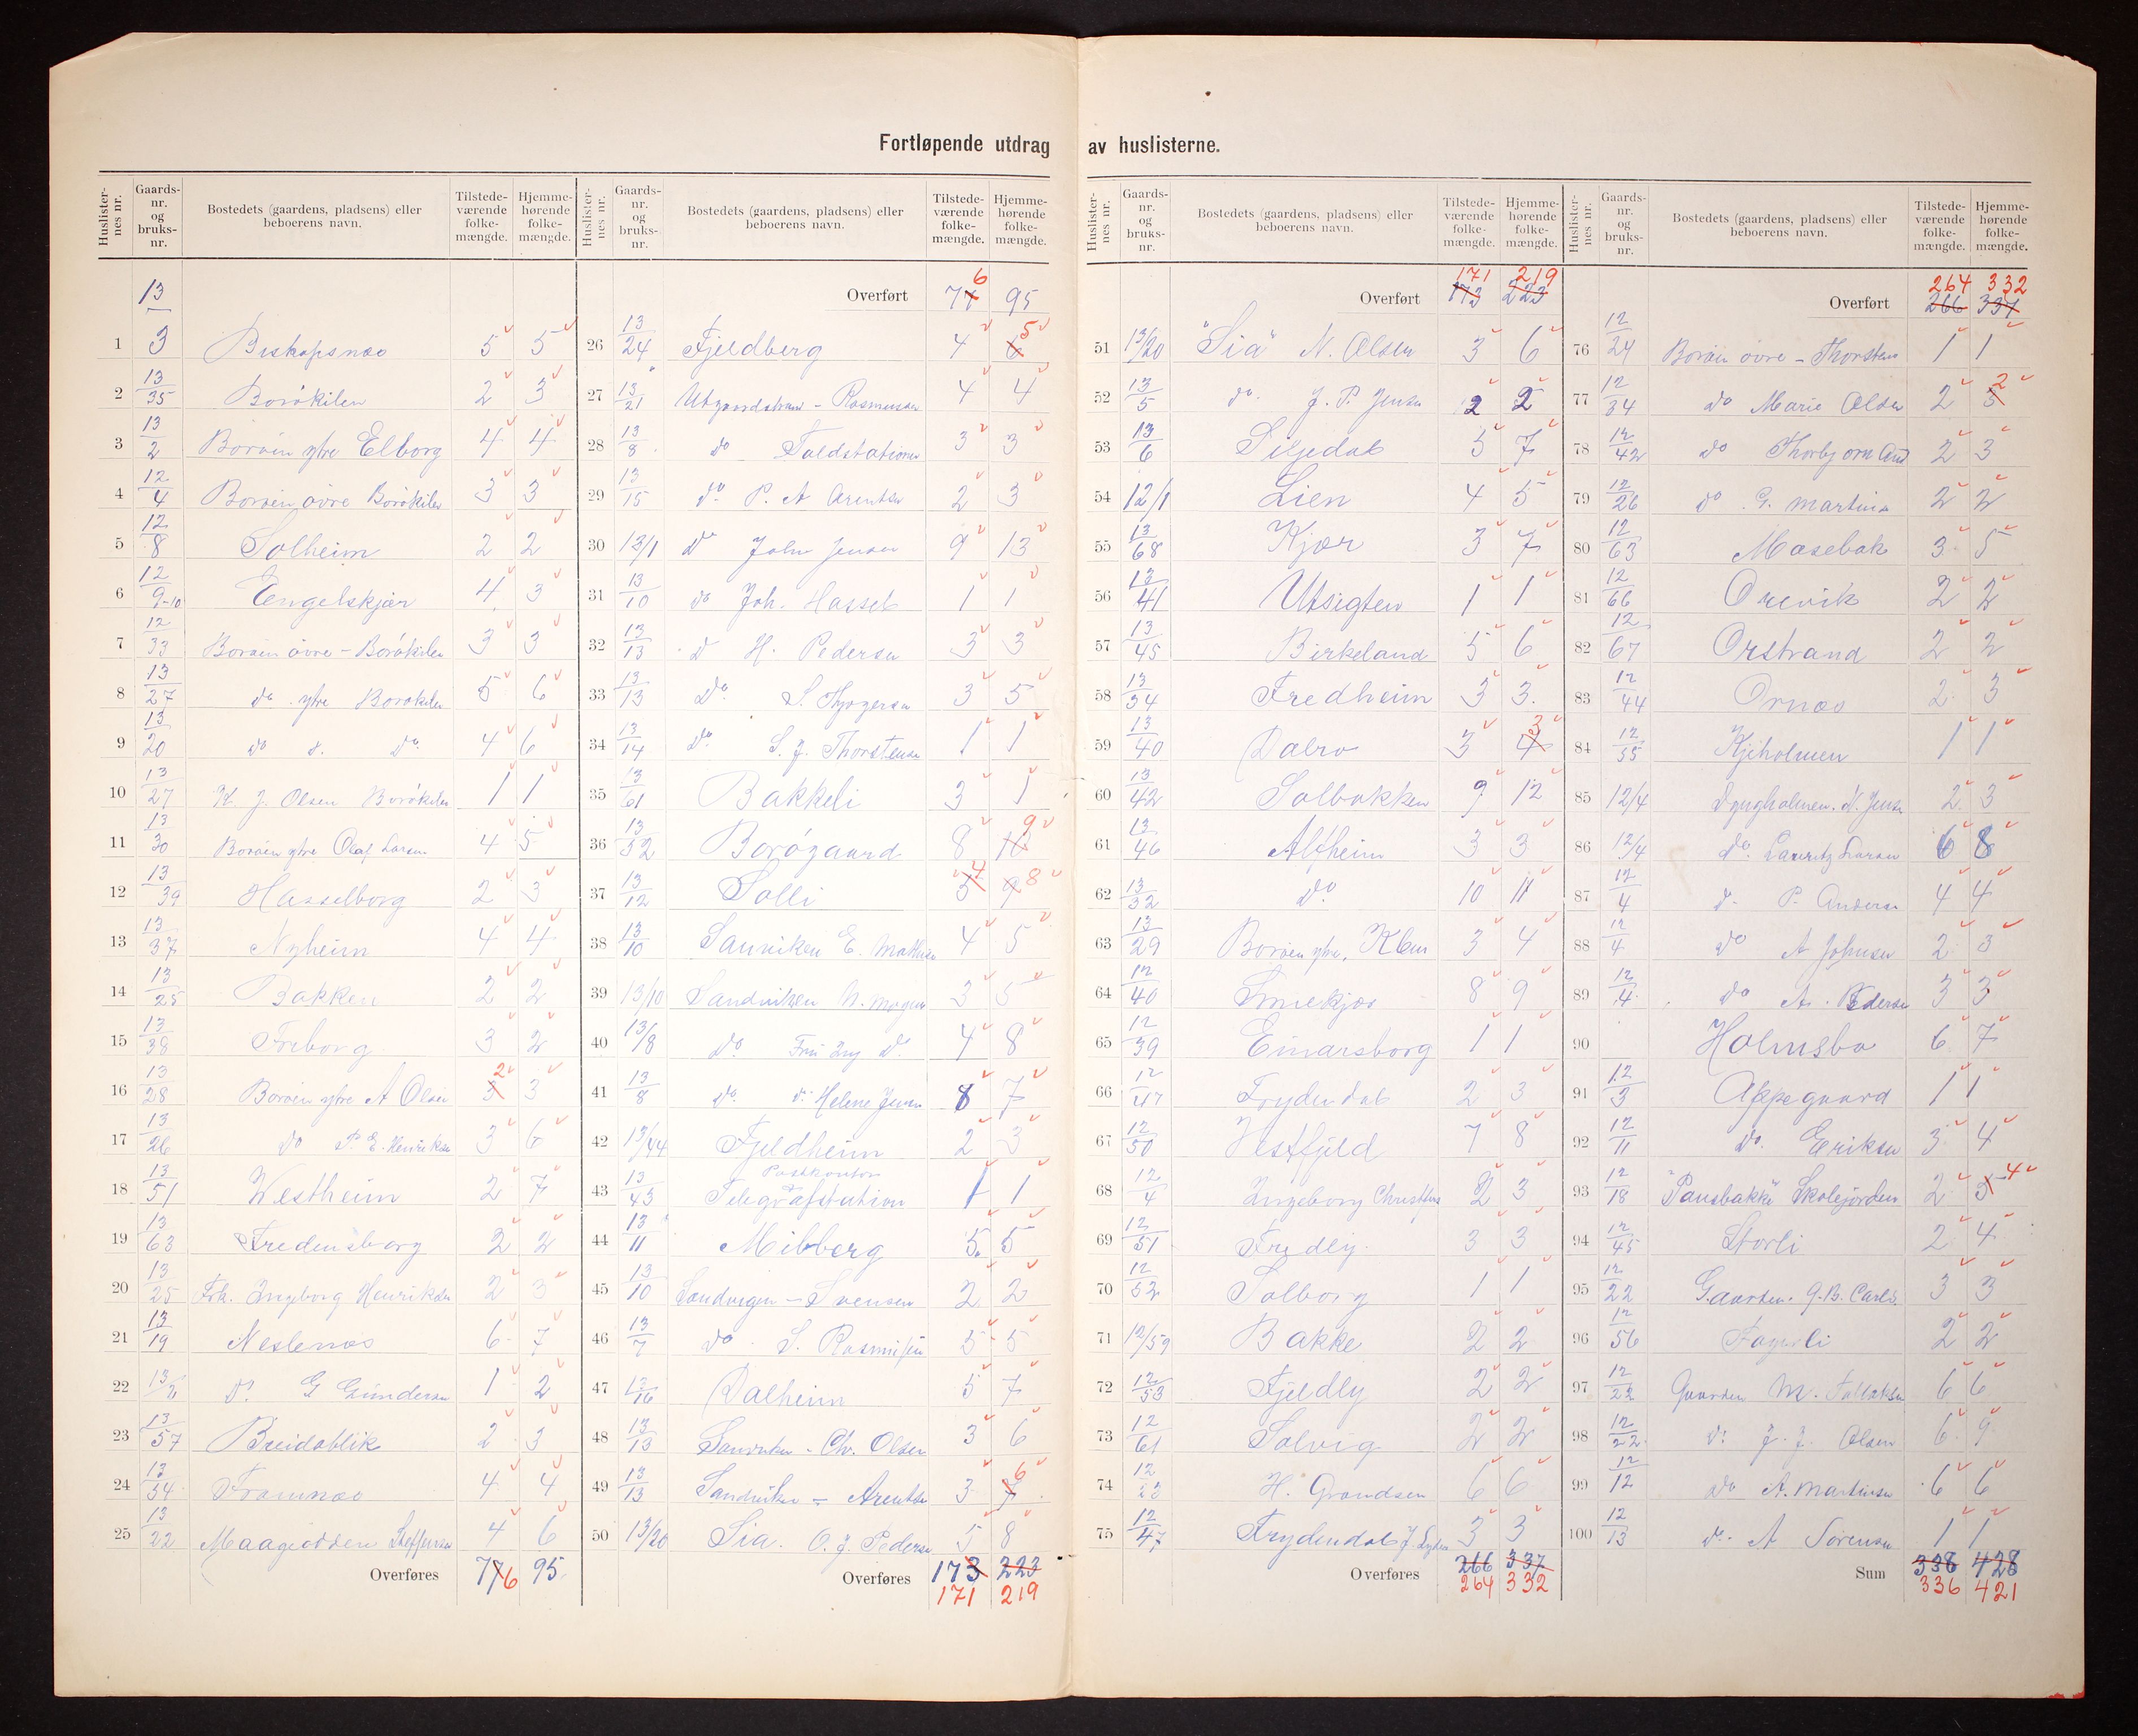 Fortløpende utdrag av huslisterne.
Huslisternes nr. Gaardsnr. og bruksnr. Bostedets (gaardens, pladsens) eller beboerens navn. Tilstedeværende folkemængde. Hjemmehørende folkemængde.
13
1 3 Biskopsnæs 5 5
2 13/35 Borökilen 2 3
3 13/2 Boröen ytre Elborg 4 4
4 12/4 Boröen övre Borökilen 3 3
5 12/8 Solheim 2 2
6 12/9-10 Engelskjær 4 3
7 12/33 Boröen övre - Borökilen 3 3
8 13/27 do ytre Borökilen 5 6
9 13/20 do do 4 6
10 13/27 J. Olsen Borökilen 1 1
11 13/30 Boröen ytre Olaf Larsen 4 5
12 13/39 Hasselborg 2 3
13 13/37 Nyheim 4 4
14 13/25 Bakken 2 2
15 13/38 Freborg 3 2
16 13/28 Boröen ytre A Olsen 3 2 3
17 13/26 do P. E. Henriksen 3 6
18 13/51 Westheim 2 7
19 13/63 Fredensborg 2 2
20 13/25 Frk. Ingeborg Henriksen 2 3
21 13/19 Neslenæs 6 7
22 13/2 do G Gundersen 1 2
23 13/57 Breidablik 2 3
24 13/54 Framnæs 4 4
25 13/22 Maageodden Steffensen 4 6
Overføres 77 6 95
Huslisternes nr. Gaardsnr. og bruksnr. Bostedets (gaardens, pladsens) eller beboerens navn. Tilstedeværende folkemængde. Hjemmehørende folkemængde.
Overført 77 6 95
26 13/24 Fjeldberg 4 6 5
27 13/21 Utgaardstrand - Rasmussen 4 4
28 13/8 do Toldstationen 3 3
29 13/15 do P. A Arentsen 2 3
30 13/1 do John Jensen 9 13
31 13/10 do Joh. Hassel 1 1
32 13/13 d H. Pedersen 3 3
33 13/13 do S. Thygesen 3 5
34 13/14 do S. J. Thorstensen 1 1
35 13/61 Bakkeli 3 1
36 13/32 Borögaard 8 10 9
37 13/12 Solli 5 4 9 8
38 13/10 Sanviken E. Mathisen 4 5
39 13/10 Sandviken 3 5
40 13/8 do Fru do 4 8
41 13/8 do do Helene Jensen 8 7
42 13/44 Fjeldheim 2 3
43 13/43 Postkontor Telegrafstation 1 1
44 13/11 Milberg 5 5
45 13/10 Sandvigen - Svensen 2 2
46 13/7 do S. Rasmussen 5 5
47 13/16 Dalheim 5 7
48 13/13 Sanviken - Chr. Olsen 3 6
49 13/13 Sandviken - Arentsen 3 7 6
50 13/20 Sia. O. J. Pedersen 5 8
Overføres 173 223
171 219
Huslisternes nr. Gaardsnr. og bruksnr. Bostedets (gaardens, pladsens) eller beboerens navn. Tilstedeværende folkemængde. Hjemmehørende folkemængde.
171 219
Overført 173 223
51 13/20 "Sia" N. Olsen 3 6
52 13/5 do J. P. Jensen 2 2
53 13/6 Siljedal 5 7
54 12/1 Lien 4 5
55 13/68 Kjær 3 7
56 13/41 Utsigten 1 1
57 13/45 Birkeland 5 6
58 13/34 Fredheim 3 3
59 13/40 Dalro 3 4 3
60 13/42 Solbakken 9 12
61 13/46 Altheim 3 3
62 13/32 do 10 11
63 13/29 Boröen ytre. Klem 3 4
64 12/40 8 9
65 12/39 Einarsborg 1 1
66 12/47 Frydendal 2 3
67 12/50 Vestfjeld 7 8
68 12/4 Ingeborg 2 3
69 12/51 Fredly 3 3
70 12/52 Solborg 1 1
71 12/59 Bakke 2 2
72 12/53 Fjeldly 2 2
73 12/61 Solvig 2 2
74 12/23 H. Grandsen 6 6
75 12/47 Frydendal J. 3 3
Overføres 266 337
264 332
Huslisternes nr. Gaardsnr. og bruksnr. Bostedets (gaardens, pladsens) eller beboerens navn. Tilstedeværende folkemængde. Hjemmehørende folkemængde.
264 332
Overført 266 337
76 12/24 Boröen övre - Thorstens 1 1
77 12/34 do Marie Olsen 2 3 2
78 12/42 do Thorbjørn And 2 3
79 12/26 do G. Martinia 2 2
80 12/63 Masebak 3 5
81 12/66 Orevik 2 2
82 12/67 Orstrand 2 2
83 12/44 Ornæs 2 3
84 12/55 Kjeholmen 1 1
85 12/4 N. Jensen 2 3
86 12/4 do Lauritz Larsen 6 8
87 12/4 d. P. Andersen 4 4
88 12/4 do A Johnsen 2 3
89 12/4 do A. Pedersen 3 3
90 Holmsbo 6 7
91 12/3 Appegaard 1 1
92 12/11 do Eriksen 3 4
93 12/18 "Pansbakke" Skolejorden 2 5 4
94 12/45 Storli 2 4
95 12/22 Gaarden. G. B. Carls. 3 3
96 12/56 Fagerli 2 2
97 12/22 Gaarden M. Tallaksen 6 6
98 12/22 do J. J. Olsen 6 9
99 12/12 do A. Martinsen 6 6
100 12/13 do A Sørensen 1 1
Sum 338 428
336 421